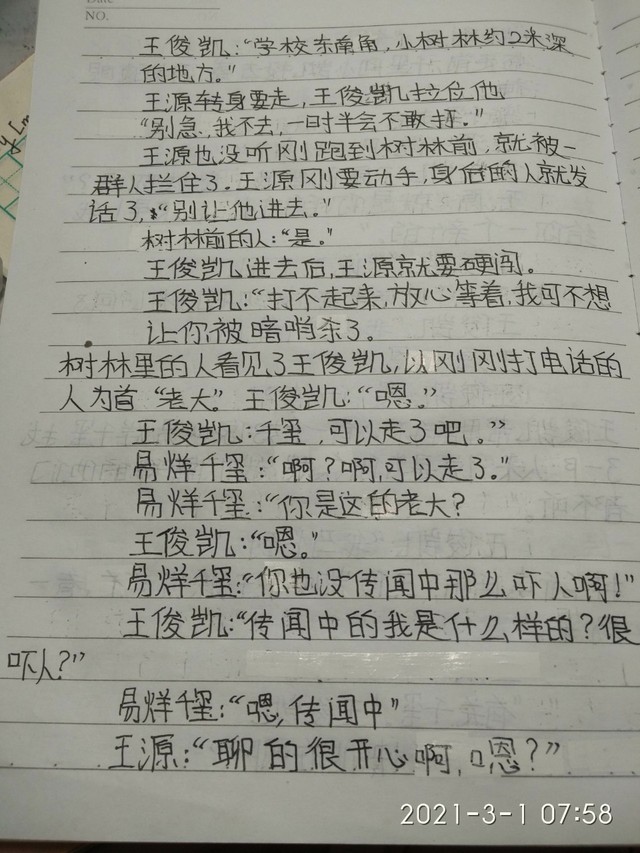 Date
NO.
王俊凯:“学校东南角,小树林约2米深
的地方。”
王源转身要走,王俊凯拉住他
“别急,我不去,一时半会不敢打。”
王源也没听刚跑到树林前,就被一
群人拦住了.王源刚要动手,身后的人就发
话了,“别让他进去。”
树林前的人:“是。”
王俊凯进去后,王源就要硬闯。
王俊凯:“打不起来,放心等着,我可不想
让你被暗哨杀了。
树林里的人看见了王俊凯,以刚刚打电话的
人为首“老大”王俊凯:“嗯。”
王俊凯:千玺,可以走了吧。”
易烊千玺:“啊?啊,可以走了。”
易烊千玺:“你是这的老大?
王俊凯:“嗯。”
易烊千玺:“你也没传闻中那么吓人啊!”
王俊凯:“传闻中的我是什么样的?很
吓人?”
易烊千玺:“嗯,传闻中”
王源:“聊的很开心啊,嗯?”
2021-3-1 07:58